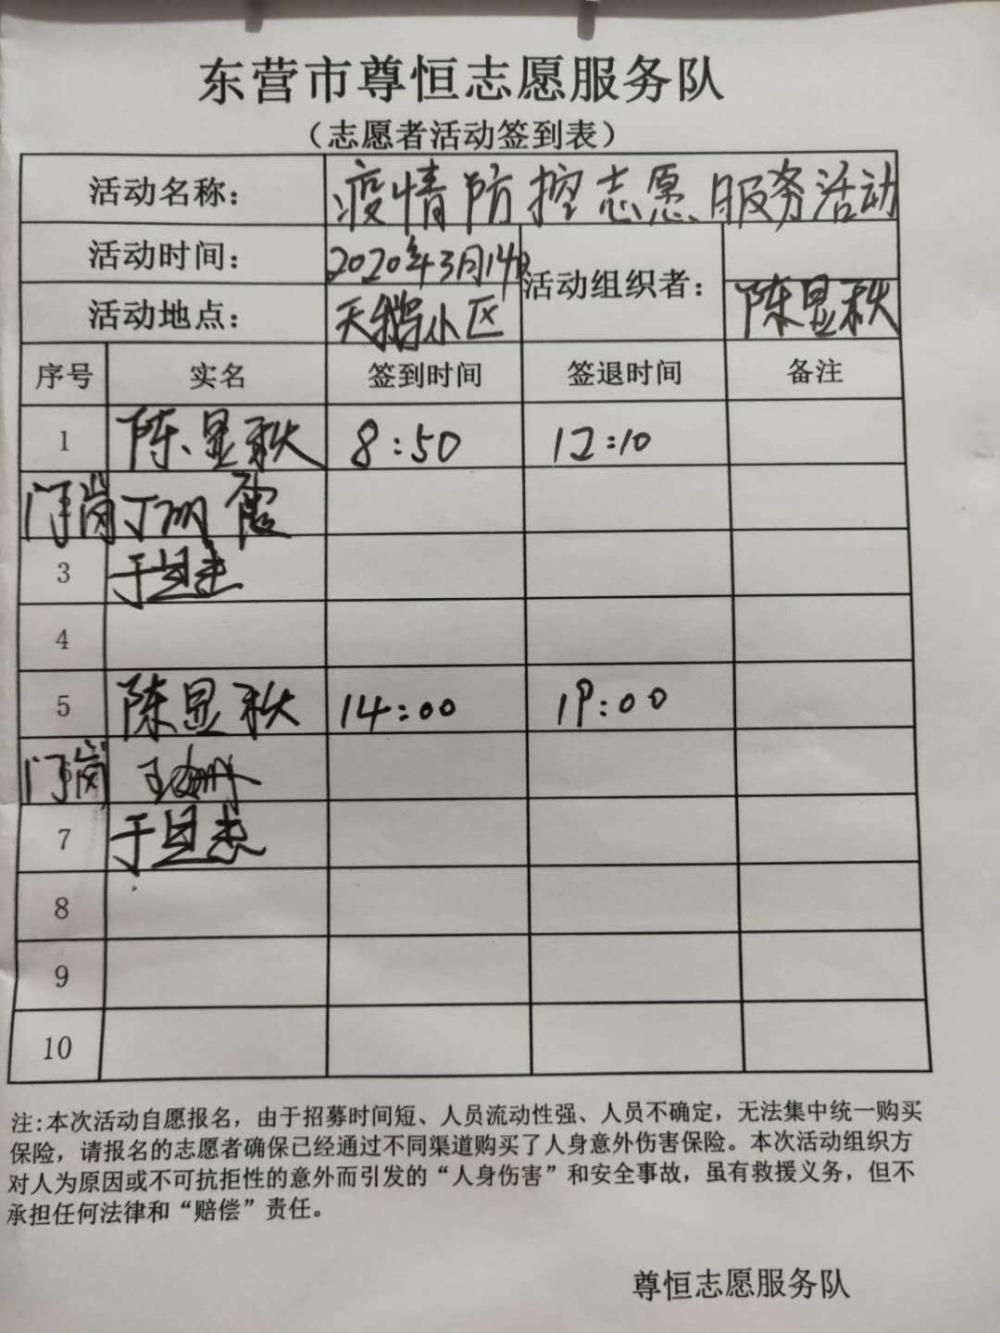 东营市尊恒志愿服务队
（志愿者活动签到表）
活动名称： 疫情防控志愿服务活动
活动时间： 2020年3月14日 活动组织者： 陈显秋
活动地点： 天鹅小区
序号 实名 签到时间 签退时间 备注
1 陈显秋 8:50 12:10
门岗 丁 霞
3 于
4
5 陈显秋 14:00 19:00
门岗 王
7 于
8
9
10
注:本次活动自愿报名，由于招募时间短、人员流动性强、人员不确定，无法集中统一购买
保险，请报名的志愿者确保已经通过不同渠道购买了人身意外伤害保险。本次活动组织方
对人为原因或不可抗拒性的意外而引发的“人身伤害”和安全事故，虽有救援义务，但不
承担任何法律和“赔偿”责任。
尊恒志愿服务队